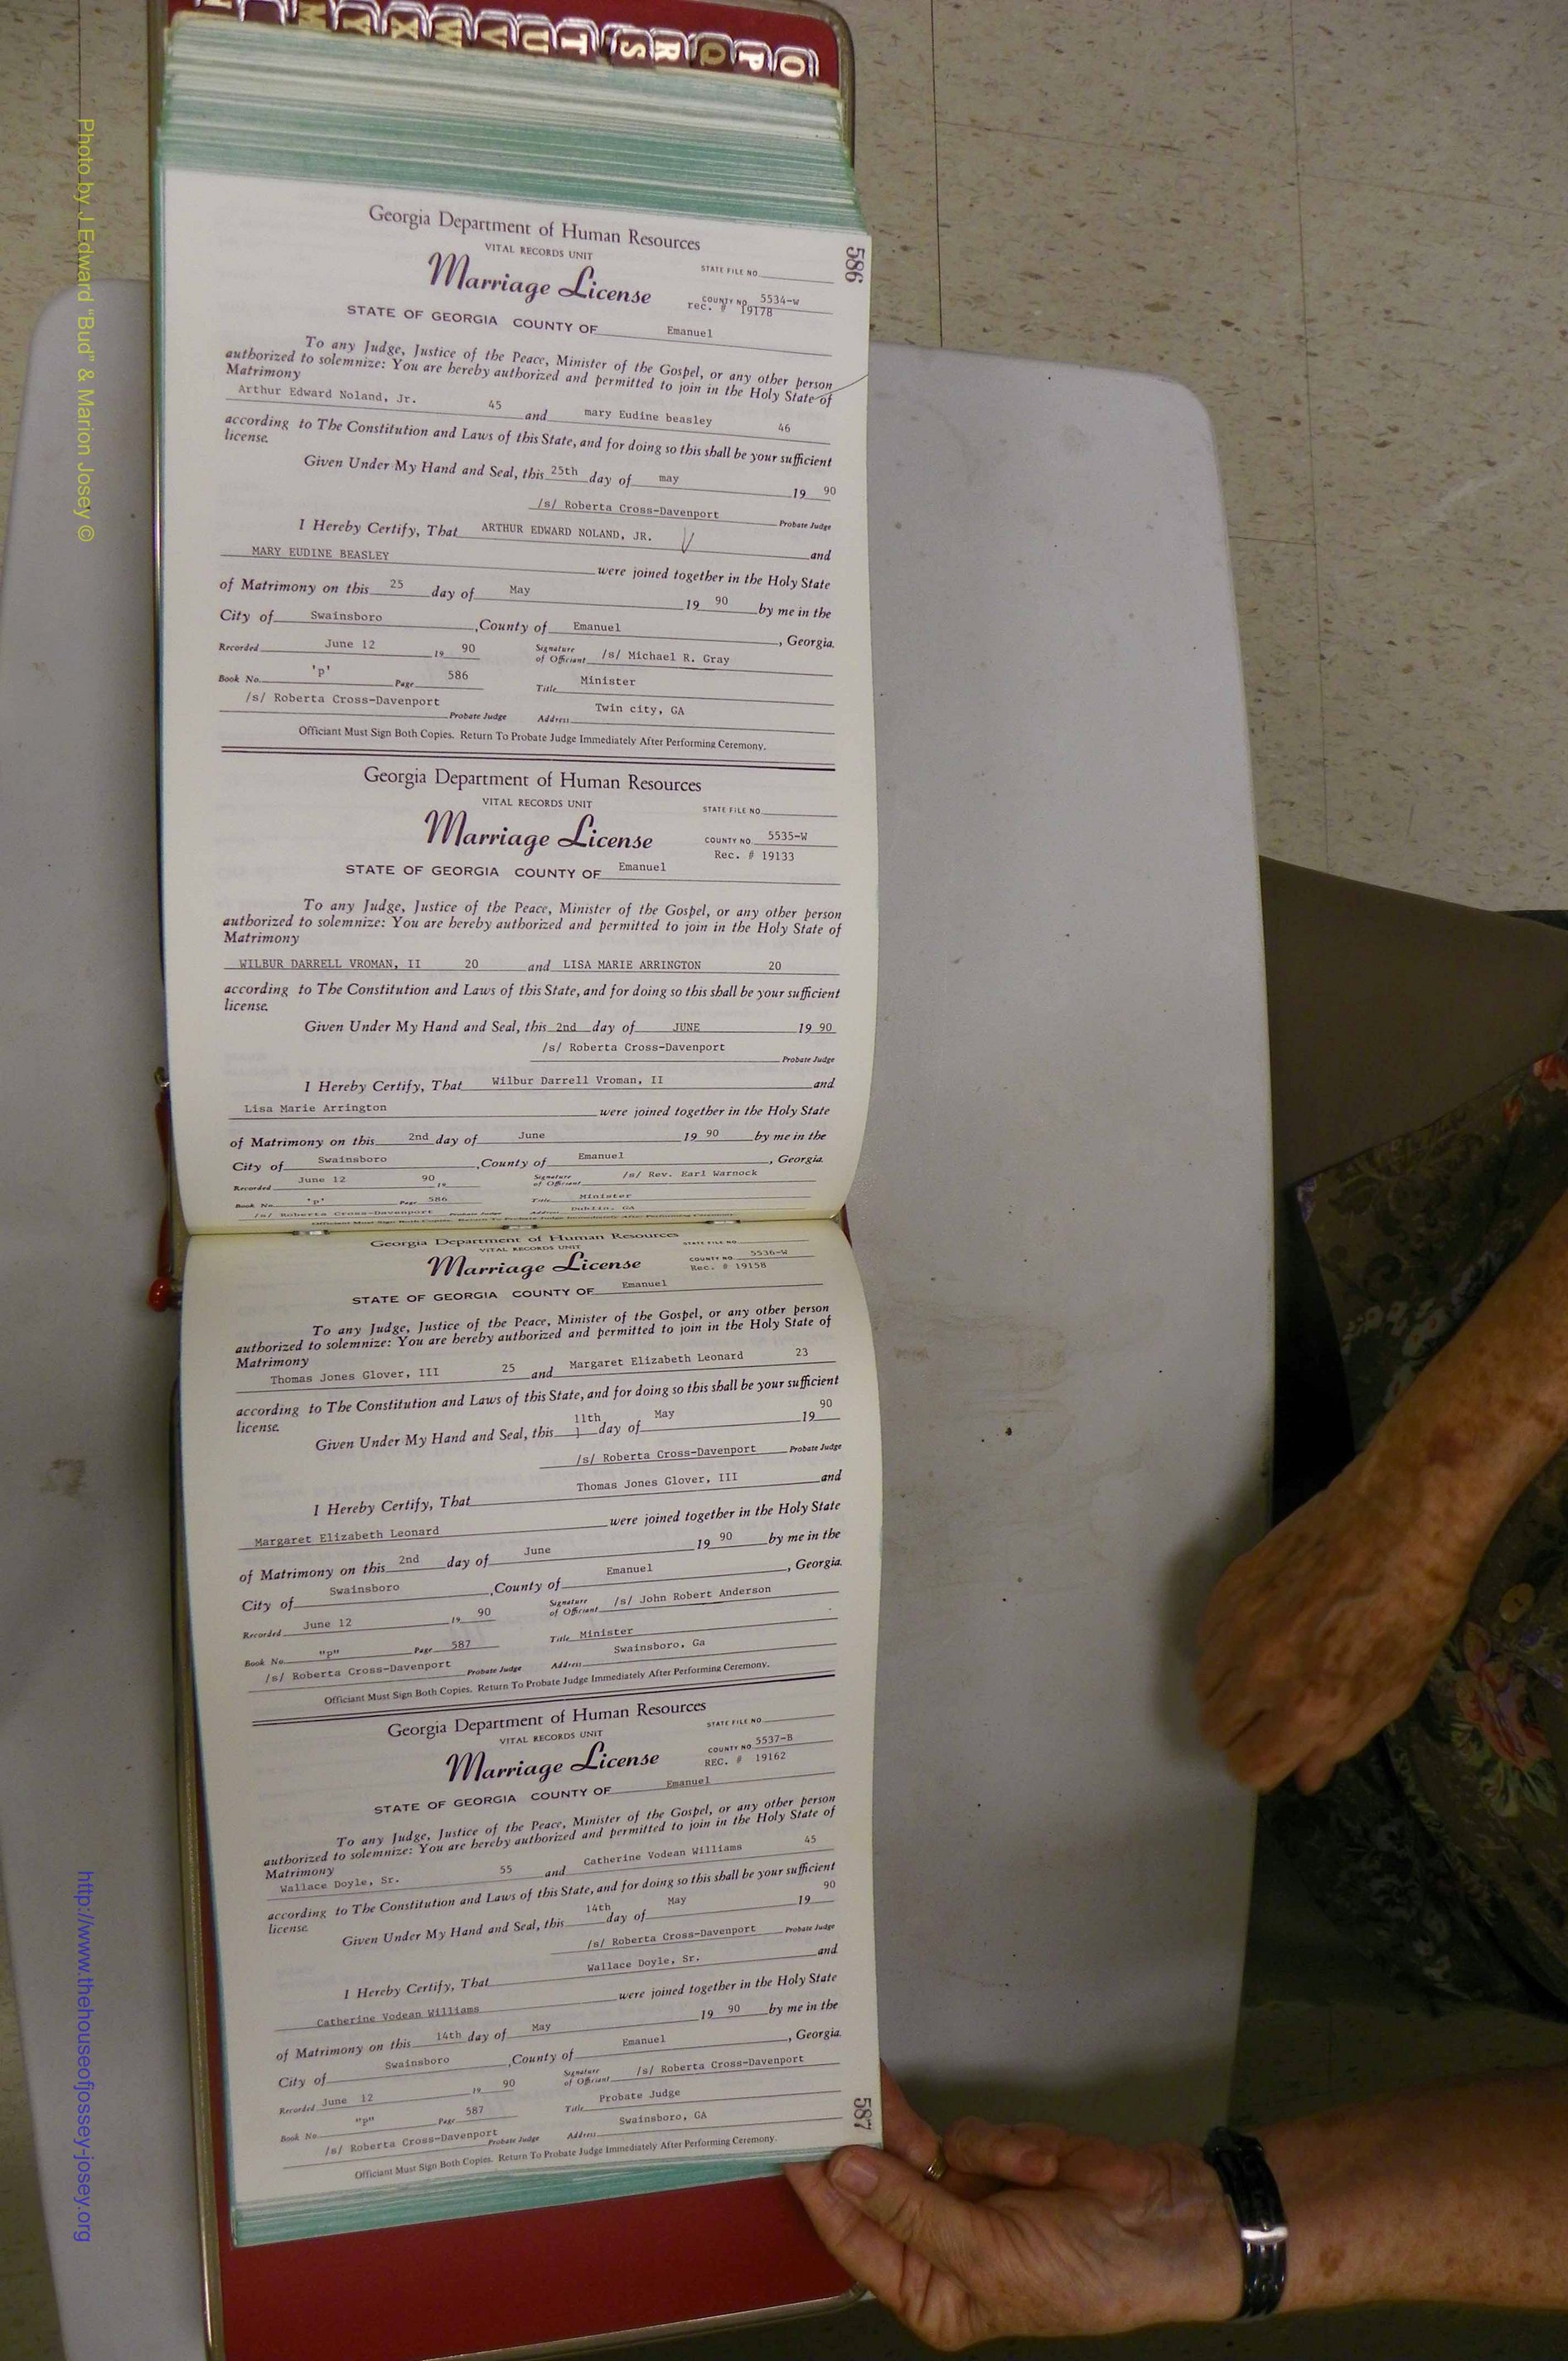 O P Q R S T U V W X Y
Photo by J Edward "Bud" & Marion Josey ©
http://www.thehouseofjossey-josey.org
586
Georgia Department of Human Resources
VITAL RECORDS UNIT
STATE FILE NO.
Marriage License
COUNTY NO. 5534-W
rec. # 19178
STATE OF GEORGIA COUNTY OF Emanuel
To any Judge, Justice of the Peace, Minister of the Gospel, or any other person
authorized to solemnize: You are hereby authorized and permitted to join in the Holy State of
Matrimony
Arthur Edward Noland, Jr. 45 and mary Eudine beasley 46
according to The Constitution and Laws of this State, and for doing so this shall be your sufficient
license.
Given Under My Hand and Seal, this 25th day of may 19 90
/s/ Roberta Cross-Davenport Probate Judge
I Hereby Certify, That ARTHUR EDWARD NOLAND, JR. and
MARY EUDINE BEASLEY were joined together in the Holy State
of Matrimony on this 25 day of May 19 90 by me in the
City of Swainsboro, County of Emanuel, Georgia.
Recorded June 12 19 90 Signature of Officiant /s/ Michael R. Gray
Book No. 'p' Page 586 Title Minister
/s/ Roberta Cross-Davenport Probate Judge Address Twin city, GA
Officiant Must Sign Both Copies. Return To Probate Judge Immediately After Performing Ceremony.
Georgia Department of Human Resources
VITAL RECORDS UNIT
STATE FILE NO.
Marriage License
COUNTY NO. 5535-W
Rec. # 19133
STATE OF GEORGIA COUNTY OF Emanuel
To any Judge, Justice of the Peace, Minister of the Gospel, or any other person
authorized to solemnize: You are hereby authorized and permitted to join in the Holy State of
Matrimony
WILBUR DARRELL VROMAN, II 20 and LISA MARIE ARRINGTON 20
according to The Constitution and Laws of this State, and for doing so this shall be your sufficient
license.
Given Under My Hand and Seal, this 2nd day of JUNE 19 90
/s/ Roberta Cross-Davenport
Probate Judge
I Hereby Certify, That Wilbur Darrell Vroman, II and
Lisa Marie Arrington were joined together in the Holy State
of Matrimony on this 2nd day of June 19 90 by me in the
City of Swainsboro, County of Emanuel, Georgia.
Recorded June 12 90 19 Signature of Officiant /s/ Rev. Earl Warnock
Book No. 'p' Page 586 Title Minister
/s/ Roberta Cross-Davenport Probate Judge Address Dublin, GA
Officiant Must Sign Both Copies. Return To Probate Judge Immediately After Performing Ceremony.
Georgia Department of Human Resources
VITAL RECORDS UNIT
STATE FILE NO.
Marriage License
COUNTY NO. 5536-W
Rec. # 19158
STATE OF GEORGIA COUNTY OF Emanuel
To any Judge, Justice of the Peace, Minister of the Gospel, or any other person
authorized to solemnize: You are hereby authorized and permitted to join in the Holy State of
Matrimony
Thomas Jones Glover, III 25 and Margaret Elizabeth Leonard 23
according to The Constitution and Laws of this State, and for doing so this shall be your sufficient
license.
Given Under My Hand and Seal, this 11th day of May 19 90
/s/ Roberta Cross-Davenport Probate Judge
I Hereby Certify, That Thomas Jones Glover, III and
Margaret Elizabeth Leonard were joined together in the Holy State
of Matrimony on this 2nd day of June 19 90 by me in the
City of Swainsboro, County of Emanuel, Georgia.
Recorded June 12 19 90 Signature of Officiant /s/ John Robert Anderson
Book No. "p" Page 587 Title Minister
/s/ Roberta Cross-Davenport Probate Judge Address Swainsboro, Ga
Officiant Must Sign Both Copies. Return To Probate Judge Immediately After Performing Ceremony.
Georgia Department of Human Resources
VITAL RECORDS UNIT
STATE FILE NO.
Marriage License
COUNTY NO. 5537-B
REC. # 19162
STATE OF GEORGIA COUNTY OF Emanuel
To any Judge, Justice of the Peace, Minister of the Gospel, or any other person
authorized to solemnize: You are hereby authorized and permitted to join in the Holy State of
Matrimony
Wallace Doyle, Sr. 55 and Catherine Vodean Williams 45
according to The Constitution and Laws of this State, and for doing so this shall be your sufficient
license.
Given Under My Hand and Seal, this 14th day of May 19 90
/s/ Roberta Cross-Davenport Probate Judge
I Hereby Certify, That Wallace Doyle, Sr. and
Catherine Vodean Williams were joined together in the Holy State
of Matrimony on this 14th day of May 19 90 by me in the
City of Swainsboro, County of Emanuel, Georgia.
Recorded June 12 19 90 Signature of Officiant /s/ Roberta Cross-Davenport
Book No. "p" Page 587 Title Probate Judge
/s/ Roberta Cross-Davenport Probate Judge Address Swainsboro, GA
Officiant Must Sign Both Copies. Return To Probate Judge Immediately After Performing Ceremony.
587